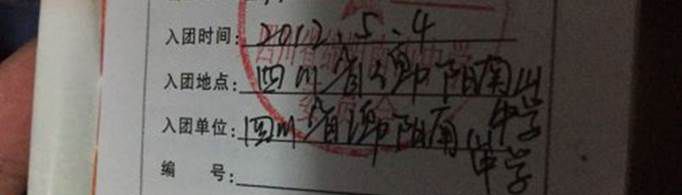 入团时间：2012.5.4
入团地点：四川省绵阳南山中学
入团单位：四川省绵阳南山中学
编　号：